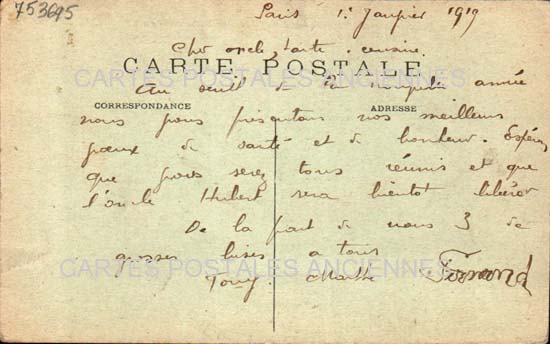 753695
Paris 1er Janvier 1919
Cher oncle, tante, cousine.
CARTE POSTALE
CARTES POSTALES ANCIENNES
Au seuil de la nouvelle année
CORRESPONDANCE ADRESSE
nous vous présentons nos meilleurs
voeux de santé et de bonheur. Espérons
que vous serez tous réunis et que
l'oncle Hubert sera bientôt libérer
De la part de nous 3 de
grosses bises a tous
CARTES POSTALES ANCIENNES
Tony. Marthe Fernand